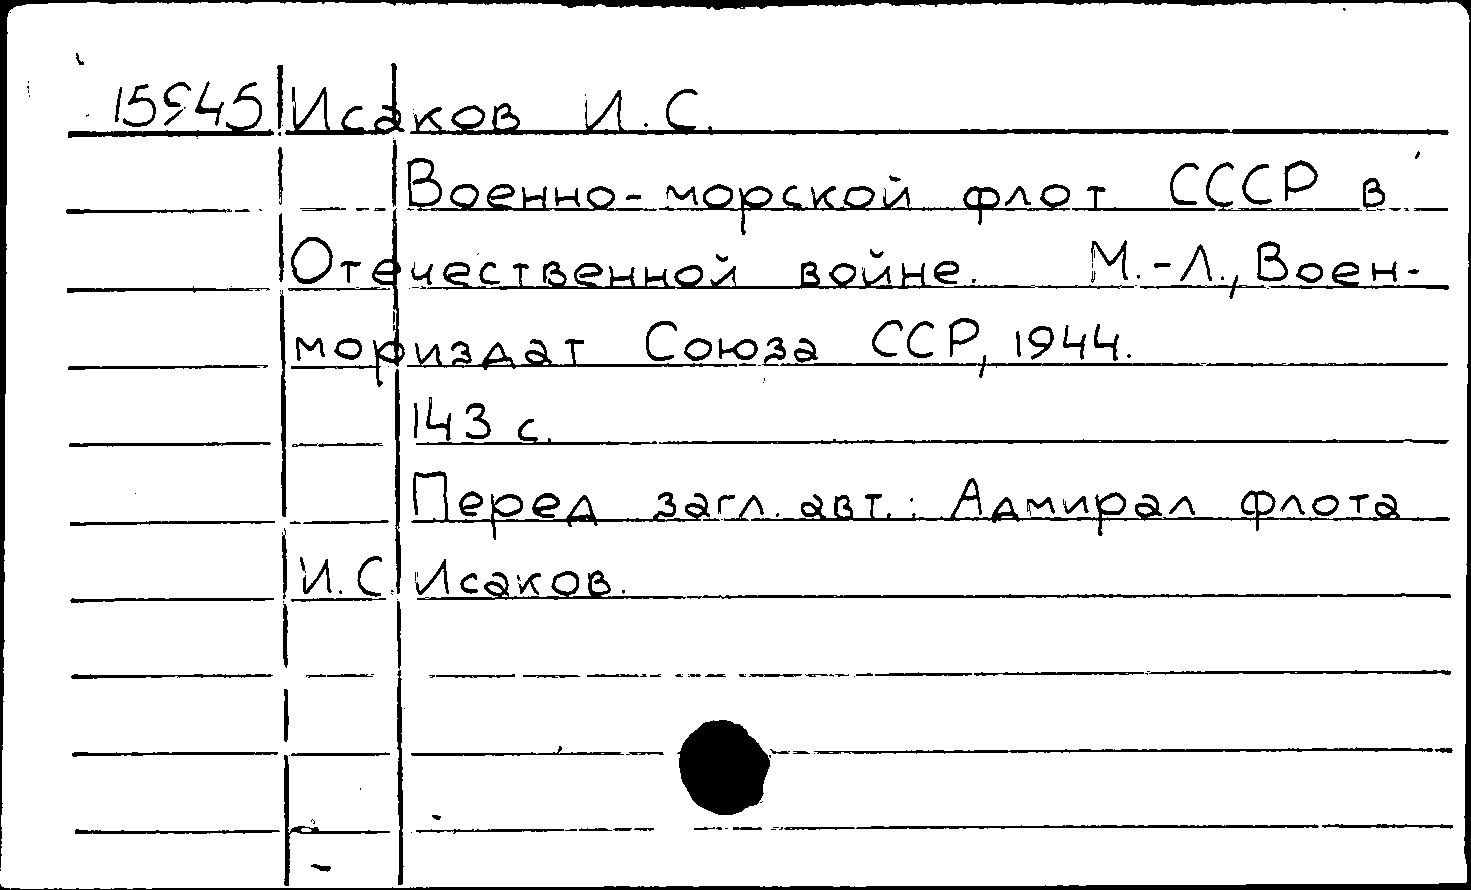 15945 Исаков И.С.
Военно-морской флот СССР в
Отечественной войне. М.-Л., Воен-
мориздат Союза ССР, 1944.
143 с.
Перед загл. авт.: Адмирал флота
И.С. Исаков.